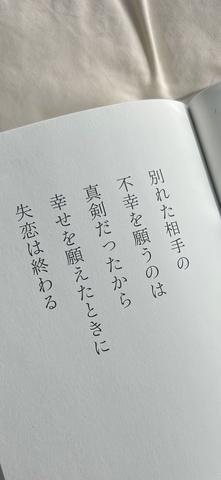 別れた相手の
不幸を願うのは
真剣だったから
幸せを願えたときに
失恋は終わる